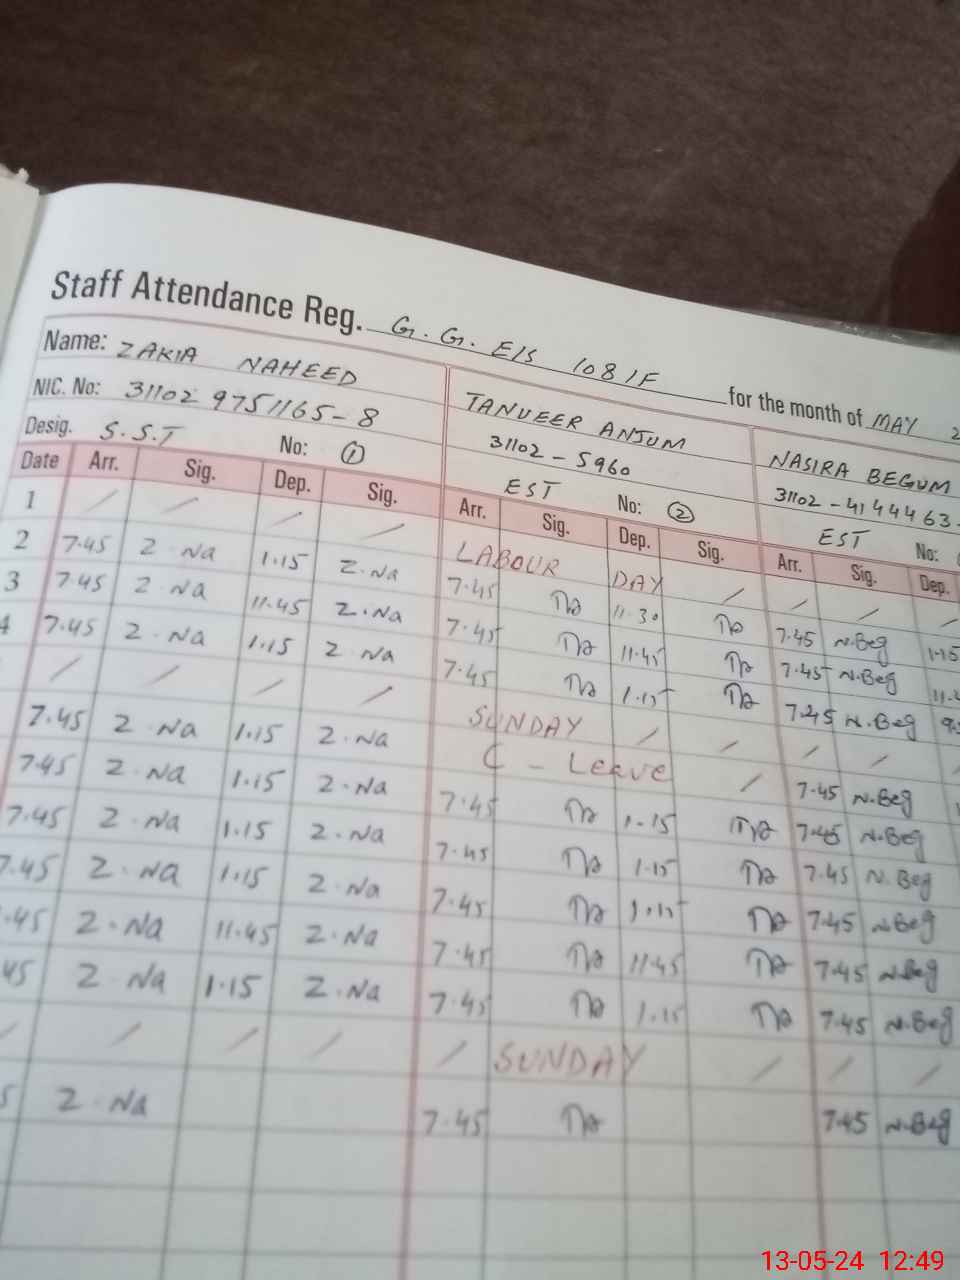 Staff Attendance Reg. G. G. E/S 108 1F for the month of MAY 2
Name: ZAKIA NAHEED TANUEER ANJUM NASIRA BEGUM
NIC. No: 31102 9751165-8 31102-5960 31102-4144463-
Desig. S.S.T No: ① EST No: ② EST No:
Date Arr. Sig. Dep. Sig. Arr. Sig. Dep. Sig. Arr. Sig. Dep.
1 / / / / LABOUR DAY / / / /
2 7.45 Z.Na 1.15 Z.Na 7.45 11.30 7.45 N.Beg 1.15
3 7.45 Z.Na 11.45 Z.Na 7.45 11.45 7.45 N.Beg
4 7.45 Z.Na 1.15 Z.Na 7.45 1.15 7.45 N.Beg
/ / / / SUNDAY / / / / /
7.45 Z.Na 1.15 Z.Na C - Leave / 7.45 N.Beg
7.45 Z.Na 1.15 Z.Na 7.45 1.15 7.45 N.Beg
7.45 Z.Na 1.15 Z.Na 7.45 1.15 7.45 N.Beg
7.45 Z.Na 1.15 Z.Na 7.45 1.15 7.45 N.Beg
.45 Z.Na 11.45 Z.Na 7.45 11.45 7.45 N.Beg
45 Z.Na 1.15 Z.Na 7.45 1.15 7.45 N.Beg
/ / / / / SUNDAY / / /
5 Z.Na 7.45 7.45 N.Beg
13-05-24 12:49